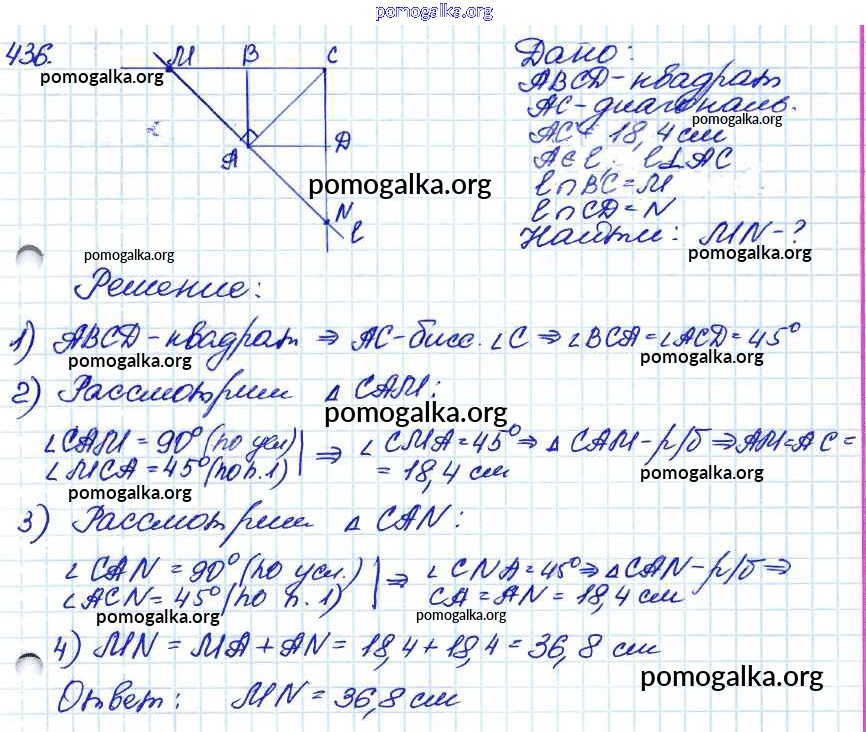 pomogalka.org
436.
M B C
A D
N
l
pomogalka.org
pomogalka.org
pomogalka.org
Дано:
ABCD - квадрат
AC - диагональ.
pomogalka.org
AC = 18,4 см
A∈l, l⊥AC
l∩BC = M
l∩CD = N
Найти: MN - ?
pomogalka.org
Решение:
1) ABCD - квадрат ⇒ AC - бисс. ∠C ⇒ ∠BCA = ∠ACD = 45°
pomogalka.org pomogalka.org
2) Рассмотрим △ CAM:
pomogalka.org
∠CAM = 90° (по усл) | ⇒ ∠CMA = 45° ⇒ △ CAM - р/б ⇒ AM = AC =
∠MCA = 45° (по п. 1) | = 18,4 см
pomogalka.org pomogalka.org
3) Рассмотрим △ CAN:
∠CAN = 90° (по усл.) | ⇒ ∠CNA = 45° ⇒ △CAN - р/б ⇒
∠ACN = 45° (по п. 1) | CA = AN = 18,4 см
pomogalka.org pomogalka.org
4) MN = MA + AN = 18,4 + 18,4 = 36,8 см
pomogalka.org
Ответ: MN = 36,8 см